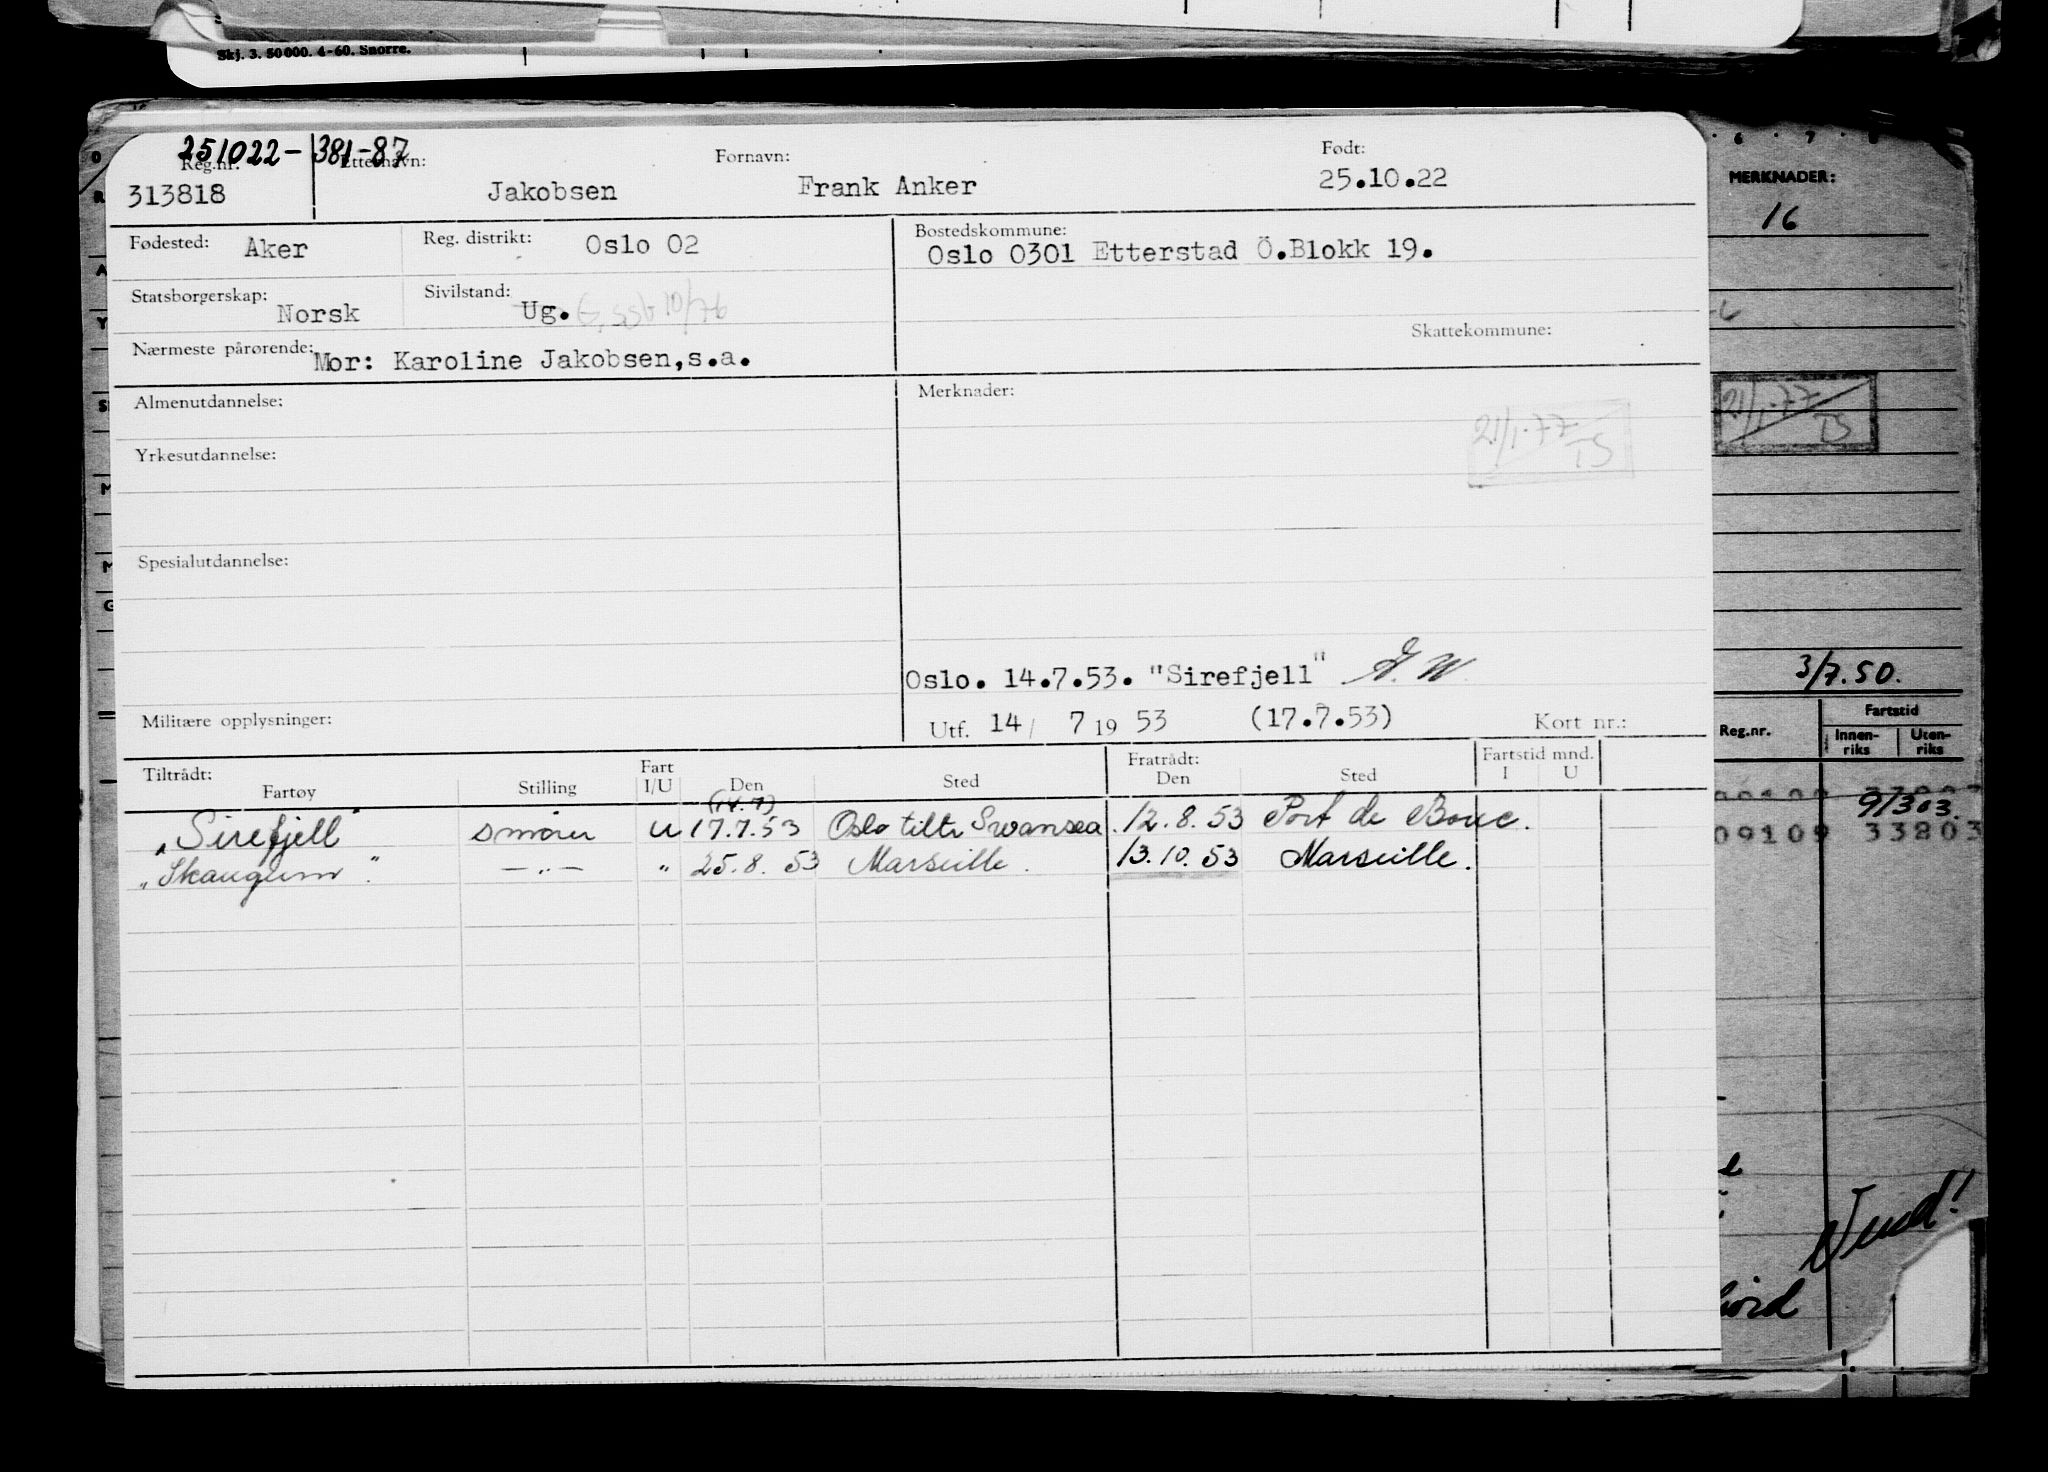 Skj. 3. 50 000. 4-60. Snorre.
251022-381-87
Reg.nr. Etternavn: Fornavn: Født:
313818 Jakobsen Frank Anker 25.10.22
Fødested: Aker Reg. distrikt: Oslo 02 Bostedskommune:
Oslo 0301 Etterstad Ö.Blokk 19.
Statsborgerskap: Norsk Sivilstand: Ug.
Skattekommune:
Nærmeste pårørende: Mor: Karoline Jakobsen,s.a.
Almenutdannelse: Merknader:
21/1.77
TS
Yrkesutdannelse:
Spesialutdannelse:
Oslo. 14.7.53. "Sirefjell"
Militære opplysninger: Utf. 14/ 7 19 53 (17.7.53) Kort nr.:
Tiltrådt: Fart Fratrådt: Fartstid mnd.
Fartøy Stilling I/U Den Sted Den Sted I U
(14.7)
"Sirefjell" smører U 17.7.53 Oslo tiltr Swansea. 12.8.53 Port de Bouc.
"Skaugum". —„— " 25.8.53 Marseille. 13.10.53 Marseille.
6 7 8
MERKNADER:
16
21/1.77
TS
3/7.50.
Reg.nr. Fartstid
Innen-riks Uten-riks
9/303.
09109 33803
Vend!